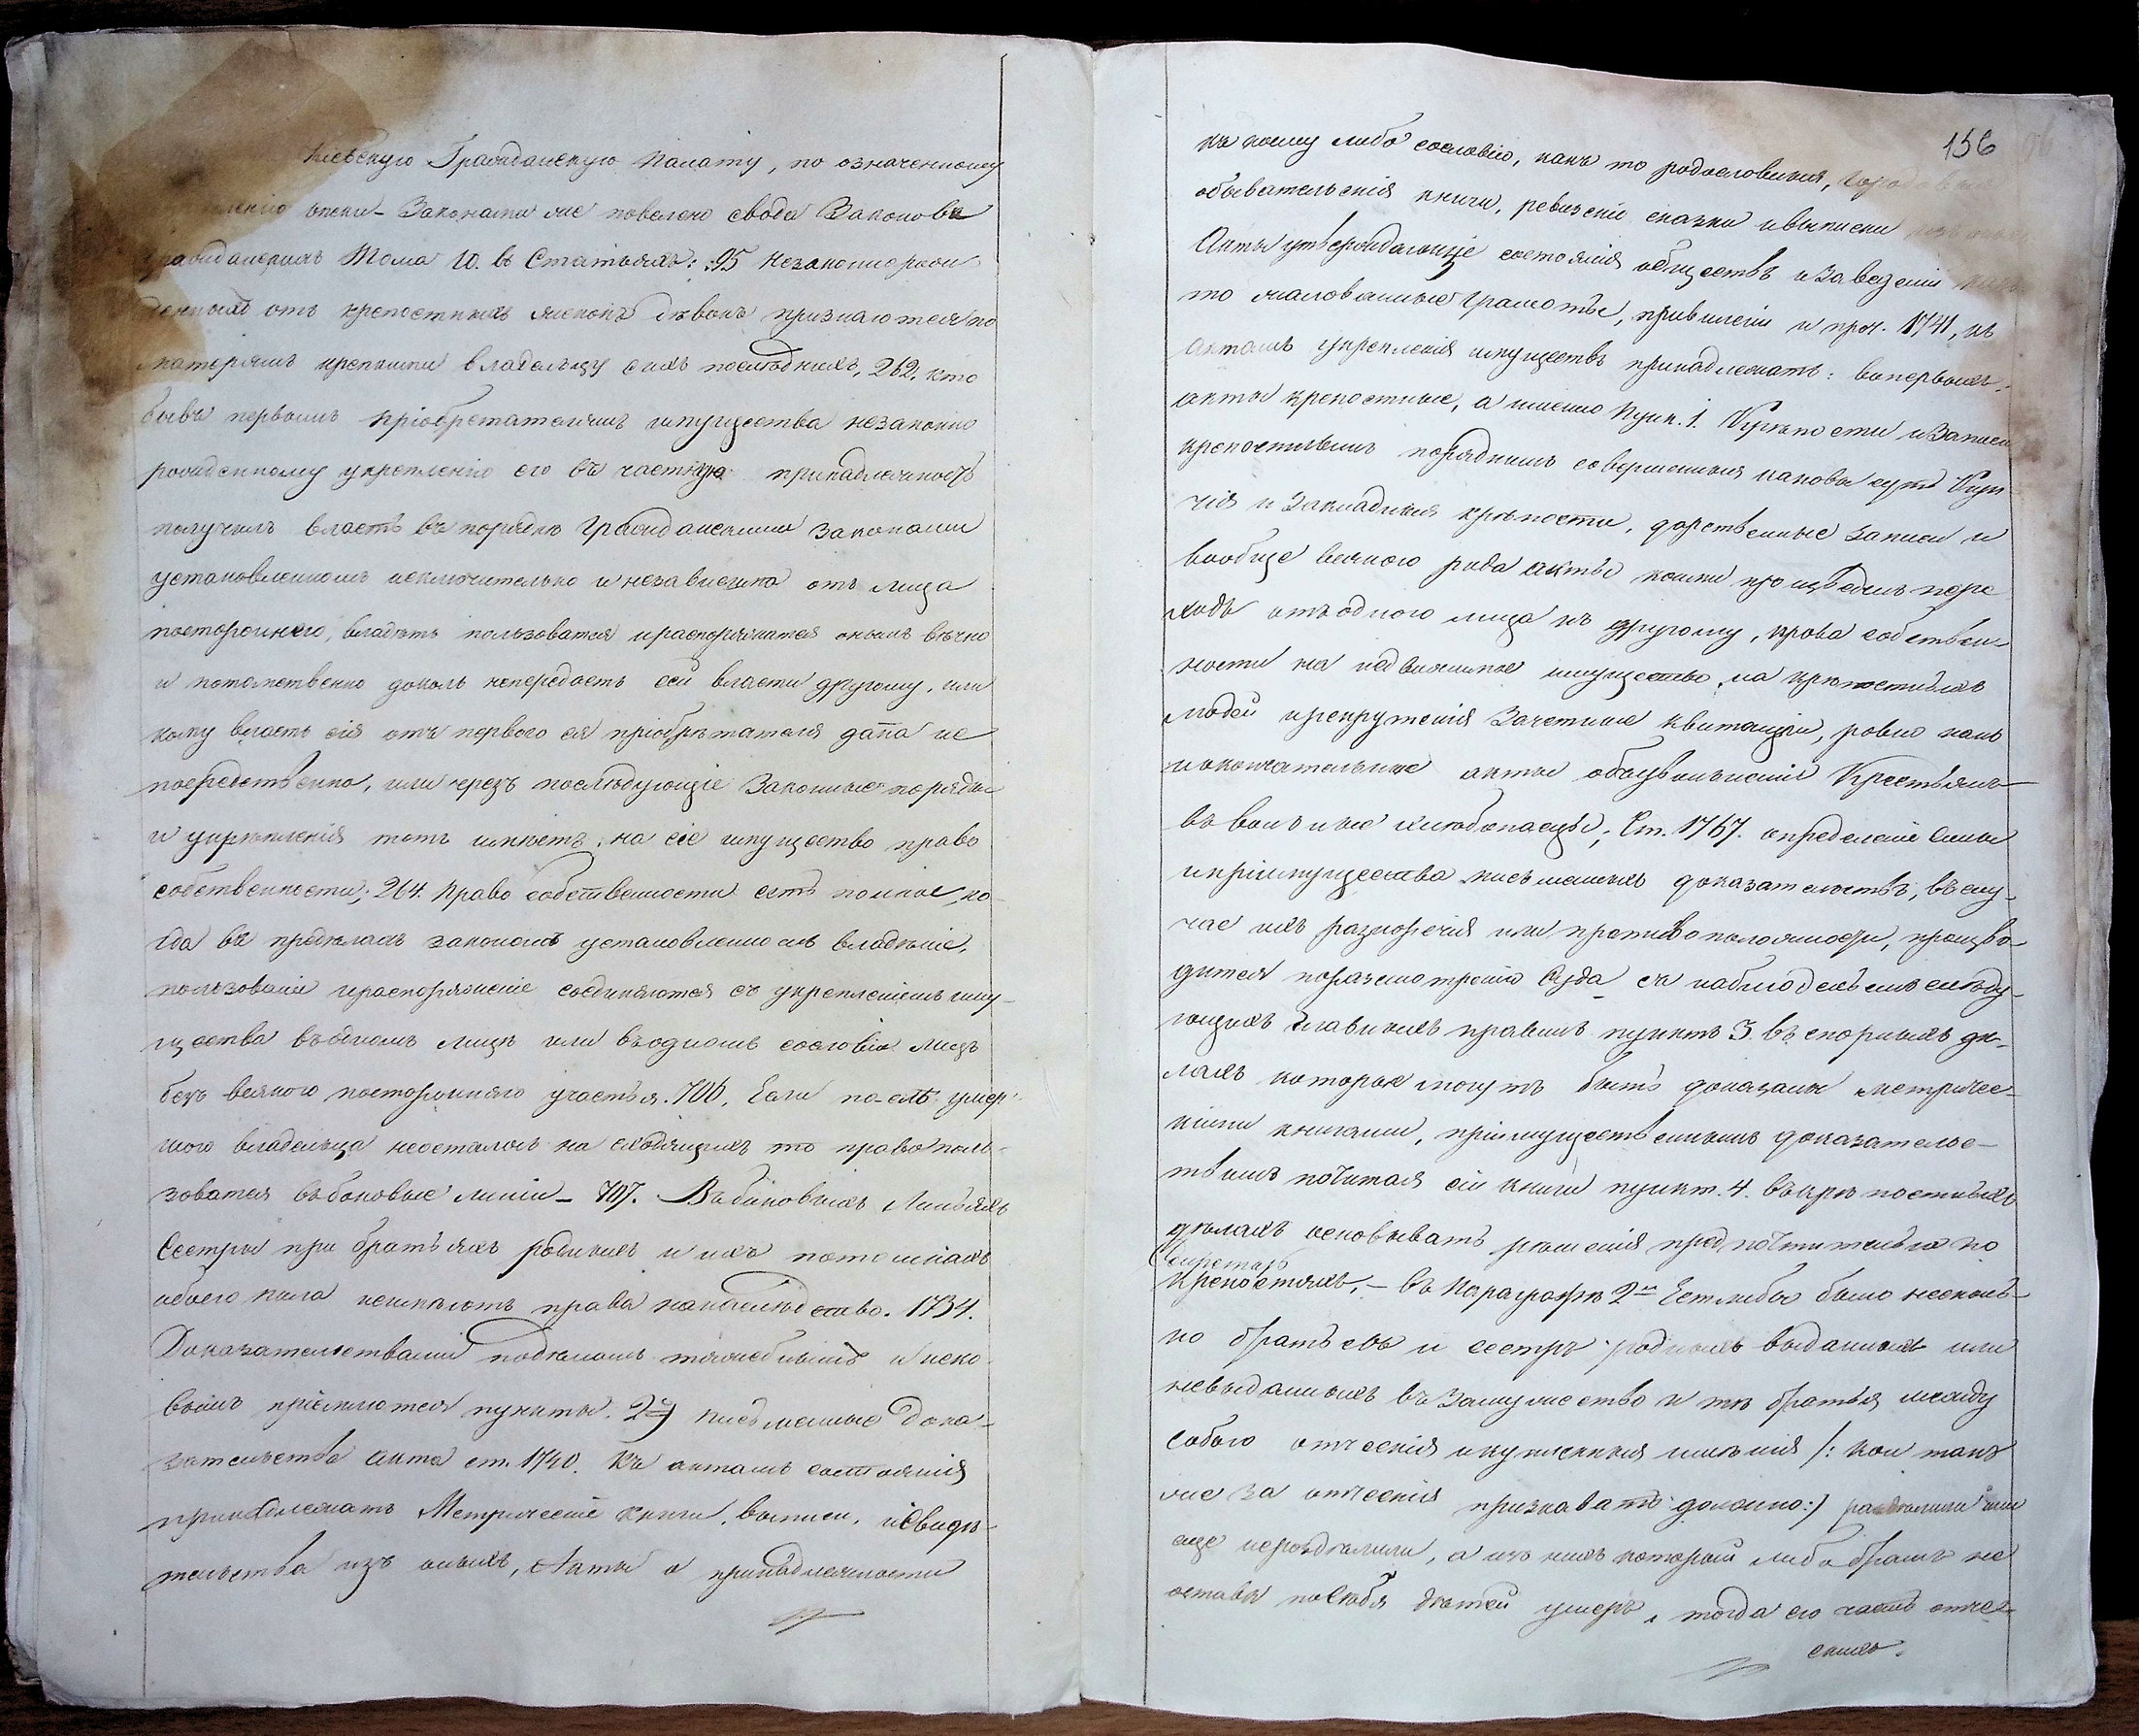 Кіевскую Гражданскую Палату, по означенному
опеки – Законами же повелено свода Законовъ
Гражданскихъ Тома 10. въ Статьяхъ: 95 Незаконнорож
денныхъ отъ крепостныхъ женокъ девокъ признаются по
матерямъ крепкими владельцу сихъ последнихъ, 262. кто
бывъ первымъ пріобретателемъ имущества незаконно
рожденному укрепленію его въ частную принадлежность
получилъ власть въ порядке Гражданскими законами
установленномъ исключительно и независимо отъ лица
посторонняго, владеть пользоватся ираспоряжатся онымъ вѣчно
и потомственно доколь непередастъ сей власти другому, или
кому власть сія отъ перваго ея пріобрѣтателя дана не
посредственно, или чрезъ послѣдующіе Законные поряды
и укрѣпленія тотъ имѣетъ, на сіе имущество право
собственности; 264. Право собственности есть полное, ко
гда въ предѣлахъ закономъ установленномъ владѣніе,
пользованіи ираспоряженіе соединяются съ укрепленіемъ иму-
щества въодномъ лицѣ или въодномъ сословіи лицъ
безъ всякого постороняго участья. 706, Если по-слѣ умер-
шого владельца неосталось на сходящихъ то право поль-
зоватся въбоковые линіи – 707. Въбоковыхъ Линьяхъ
Сестры при братьяхъ родныхъ и ихъ потомкахъ
обоего пола неимѣютъ права нанаслѣдство. 1734.
Доказательствами подѣламъ тяжебнымъ и иско
вымъ пріемлются пункты. 2й) письменные Дока-
зательства акта ст. 1740. Къ актамъ состоянія
принадлежатъ Метрическіе книги, выписи, исвидѣ-
тельства изъ оныхъ, Акты о принадлежности
156
къ коему либо сословію, какъ то родословныя,
обывательскія книги, ревизскіе сказки ивыписки
Акты утверждающіе состоянія обществъ и заведеніи какъ
то жалованные грамоты, привилегіи и проч. 1741, къ
актамъ укрепленія имуществъ принадлежатъ: вопервыхъ.
акты крепостные, а именно Пунк. 1. Купѣпости и Записи
крепостнымъ порядкомъ совершенныя каковы суть Куп
чія и Закладныя крѣпости, дарственные записи и
вообще всякого рода акты коими производимъ пере
ходъ отъ одного лица къ другому, права собствен-
ности на недвижимое имущество, на крѣпостныхъ
людей ирекрутскія Зачетныя квитанціи, ровно какъ
иокончательные акты обаувольненіи Крестьянъ
въ вольные хлюбопаецы; Ст. 1767. определеніе Силы
ипріимущества письменныхъ доказательствъ, въслу-
чае ихъ разноречія или противоположности, произво-
дится поразсмотренію Суда съ наблюденьемъ слѣду-
ющихъ Главныхъ правилъ пунктъ 3. въ спорныхъ дѣ-
лахъ которые могутъ быть доказаны метричес-
кими книгами, пріимущественнымъ доказательс-
твомъ почитая сіи книги пункт. 4. въкрѣпостныхъ
дѣлахъ основывать рѣшенія предпочтительно по
Секретарь
крепостямъ, – въ Параграфѣ 2м Естлибы было несколь-
ко братьевъ и сестръ родныхъ выданныхъ или
невыданныхъ въ Замужество и тѣ братья между
собою отческія икупленныя имѣнія /: кои такъ
же за отческія признавать должно:/ раздѣлили или
еще нераздѣлили, а изъ нихъ который либо братъ не
оставя посебѣ дѣтей умеръ, тогда его часть отче-
скихъ.